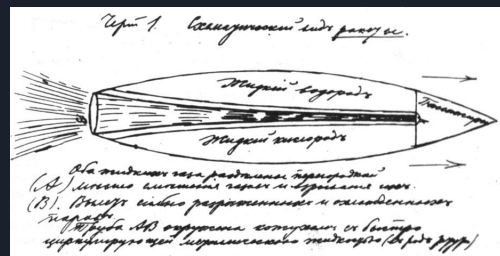 Черт 1. Схематический видъ ракеты.
Жидкий водородъ
Жидкий кислородъ
Оба жидкихъ газа разделены перегородкой
(A) Место смешения газовъ и взрывания ихъ.
(B). Выходъ сильно разреженныхъ и охлажденныхъ
паровъ.
Труба AB окружена кожухомъ съ быстро
циркулирующей металлического жидкостью